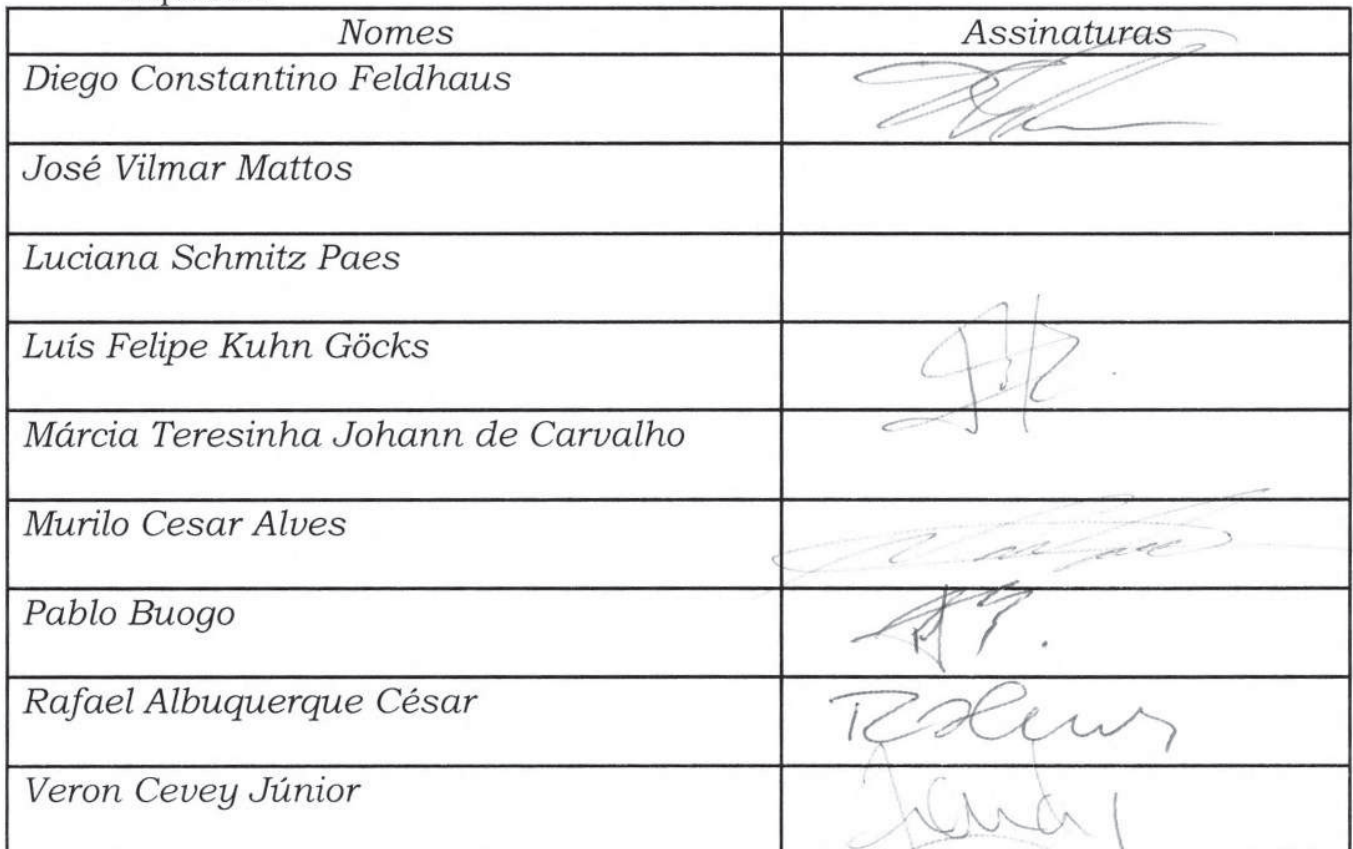 Nomes Assinaturas
Diego Constantino Feldhaus
José Vilmar Mattos
Luciana Schmitz Paes
Luís Felipe Kuhn Göcks
Márcia Teresinha Johann de Carvalho
Murilo Cesar Alves
Pablo Buogo
Rafael Albuquerque César
Veron Cevey Júnior